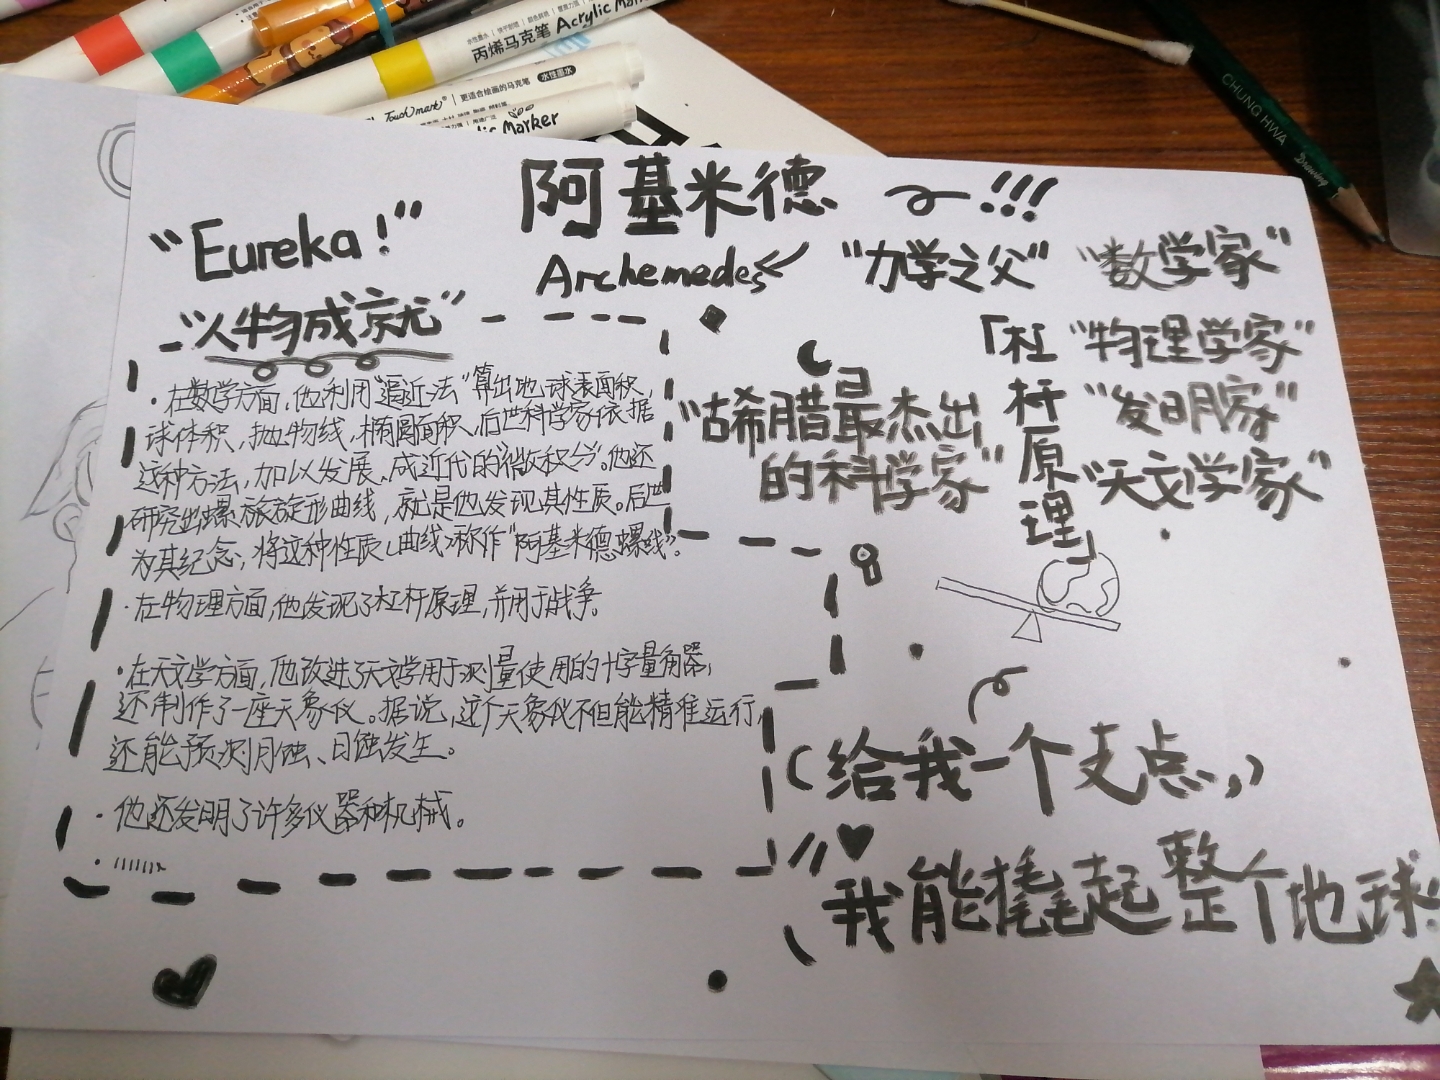 丙烯马克笔 Acrylic Mark
Touch mark
更适合绘画的马克笔
水性墨水
lic Marker
CHUNG HWA
Drawing
阿基米德 !!!
“Eureka!”
Archemedes
“力学之父”
“数学家”
“人物成就”
「杠杆原理」
“物理学家”
“发明家”
“天文学家”
“古希腊最杰出
的科学家”
·在数学方面,他利用“逼近法”算出地球表面积,
球体积,抛物线,椭圆面积,后世科学家依据
这种方法,加以发展,成近代的“微积分”。他还
研究出螺旋形曲线,就是他发现其性质。后世
为其纪念,将这种性质(曲线)称作“阿基米德螺线”。
·在物理方面,他发现了杠杆原理,并用于战争。
·在天文学方面,他改进了天文学用于测量使用的十字量角器,
还制作了一座天象仪。据说,这个天象仪不但能精准运行,
还能预测月蚀、日蚀发生。
·他还发明了许多仪器和机械。
(给我一个支点,)
(我能撬起整个地球!